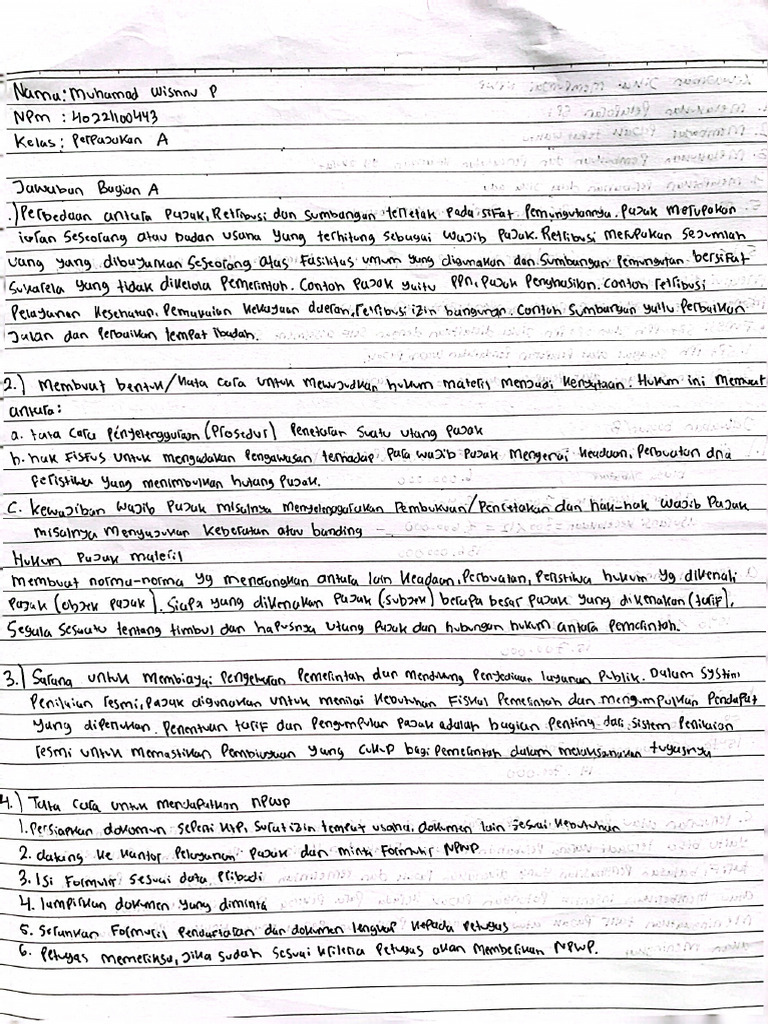 Nama : Muhamad Wisnnu P
NPM : 40221100443
Kelas : Perpajakan A
Jawaban Bagian A
.) Perbedaan antara Pajak, Retribusi dan Sumbangan terletak pada sifat Pemungutannya. Pajak merupakan
iuran Seseorang atau badan usaha yang terhitung sebagai wajib Pajak. Retribusi merupakan Sejumlah
uang yang dibayarkan Seseorang atas Fasilitas umum yang digunakan dan Sumbangan Pemungutan bersifat
Sukarela yang tidak dikelola Pemerintah. Contoh Pajak yaitu PPN, Pajak Penghasilan. Contoh retribusi
Pelayanan Kesehatan, Pemakaian Kekayaan daerah, retribusi izin bangunan. Contoh Sumbangan yaitu Perbaikan
Jalan dan Perbaikan tempat ibadah.
2.) Membuat bentuk/kata cara untuk mewujudkan hukum materil menjadi Kenyataan. Hukum ini Memuat
antara:
a. tata cara Penyelenggaraan (Prosedur) Penetapan Suatu utang Pajak
b. hak Fiskus untuk mengadakan Pengawasan terhadap Para wajib Pajak Mengenai Keadaan, Perbuatan dna
Peristiwa yang menimbulkan hutang Pajak.
C. Kewajiban Wajib Pajak misalnya Menyelenggarakan Pembukuan/Pencatatan dan hak-hak Wajib Pajak
misalnya Mengajukan Keberatan atau banding
Hukum Pajak materil
Membuat norma-norma yg menerangkan antara lain Keadaan, Perbuatan, Peristiwa hukum yg dikenali
Pajak (objek pajak). Siapa yang dikenakan Pajak (subjek) berapa besar Pajak yang dikenakan (tarif),
Segala Sesuatu tentang timbul dan hapusnya Utang Pajak dan hubungan hukum antara Pemerintah.
3.) Sarana untuk Membiayai Pengeluaran Pemerintah dan mendukung Penyediaan layanan Publik. Dalam System
Penilaian resmi, Pajak digunakan untuk menilai Kebutuhan Fiskal Pemerintah dan mengumpulkan Pendapat
Yang diperlukan. Penentuan tarif dan Pengumpulan Pajak adalah bagian Penting dari sistem Penilaian
resmi untuk memastikan Pembiayaan yang Cukup bagi Pemerintah dalam melaksanakan tugasnya
4.) Tata Cara untuk mendapatkan NPWP
1. Persiapkan dokumen seperti KTP, Surat izin tempat usaha, dokumen lain Sesuai Kebutuhan
2. datang ke Kantor Pelayanan Pajak dan minta Formulir NPWP
3. Isi Formulir Sesuai data Pribadi
4. lampirkan dokumen yang diminta
5. Serahkan Formulir Pendaftaran dan dokumen lengkap Kepada Petugas
6. Petugas memeriksa, Jika sudah sesuai kriteria Petugas akan Memberikan NPWP.